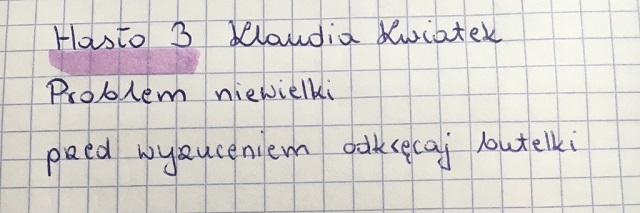 Hasło 3 Klaudia Kwiatek
Problem niewielki
przed wyrzuceniem odkręcaj butelki